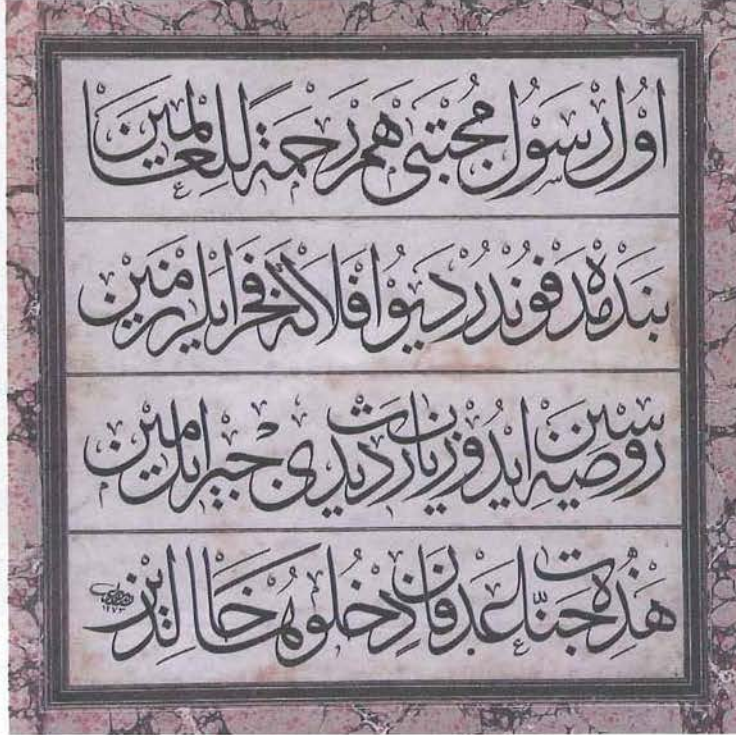 اول رسول مجتبى هم رحمة للعالمين
بنده مدفوندر ديو افلاكه فخر ايلر زمين
روضه سين ايدوب زيارت ديدى جبرائل امين
هذه جنات عدن فادخلوها خالدين
١٢٧٣